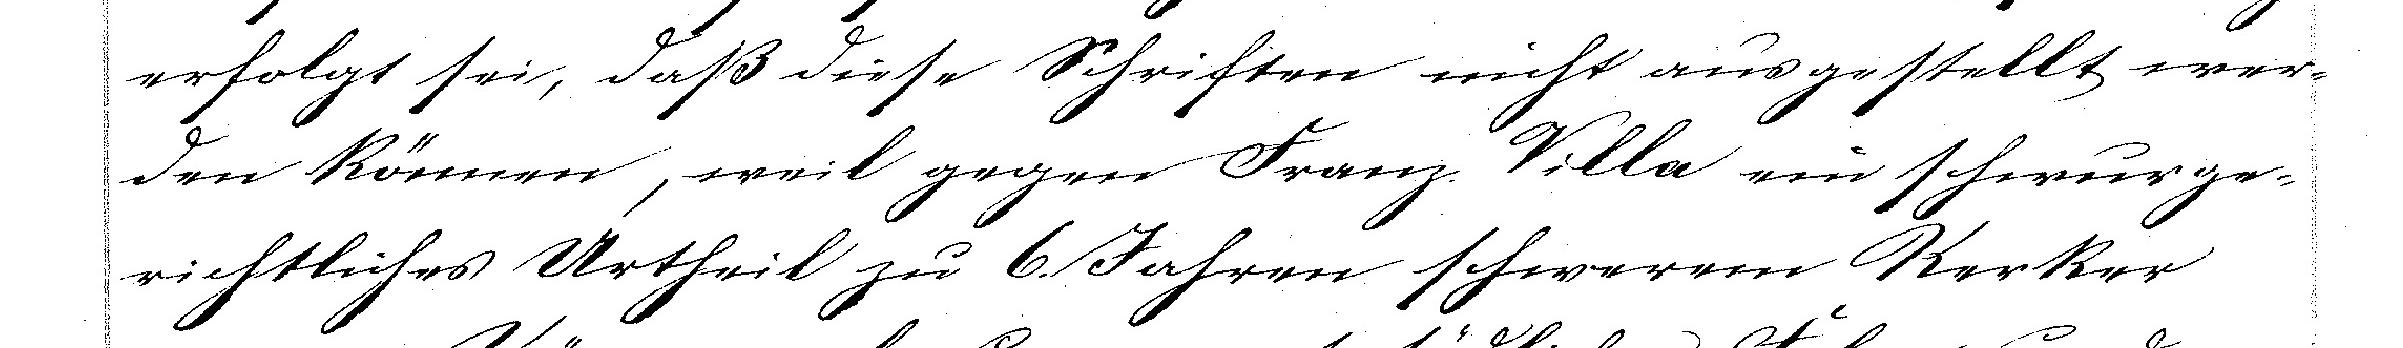 erfolgt sei, daß diese Schriften nicht ausgestellt wer-
den können, weil gegen Franz Villa ein schwurge-
richtliches Urtheil zu 6. Jahren schwerem Kerker